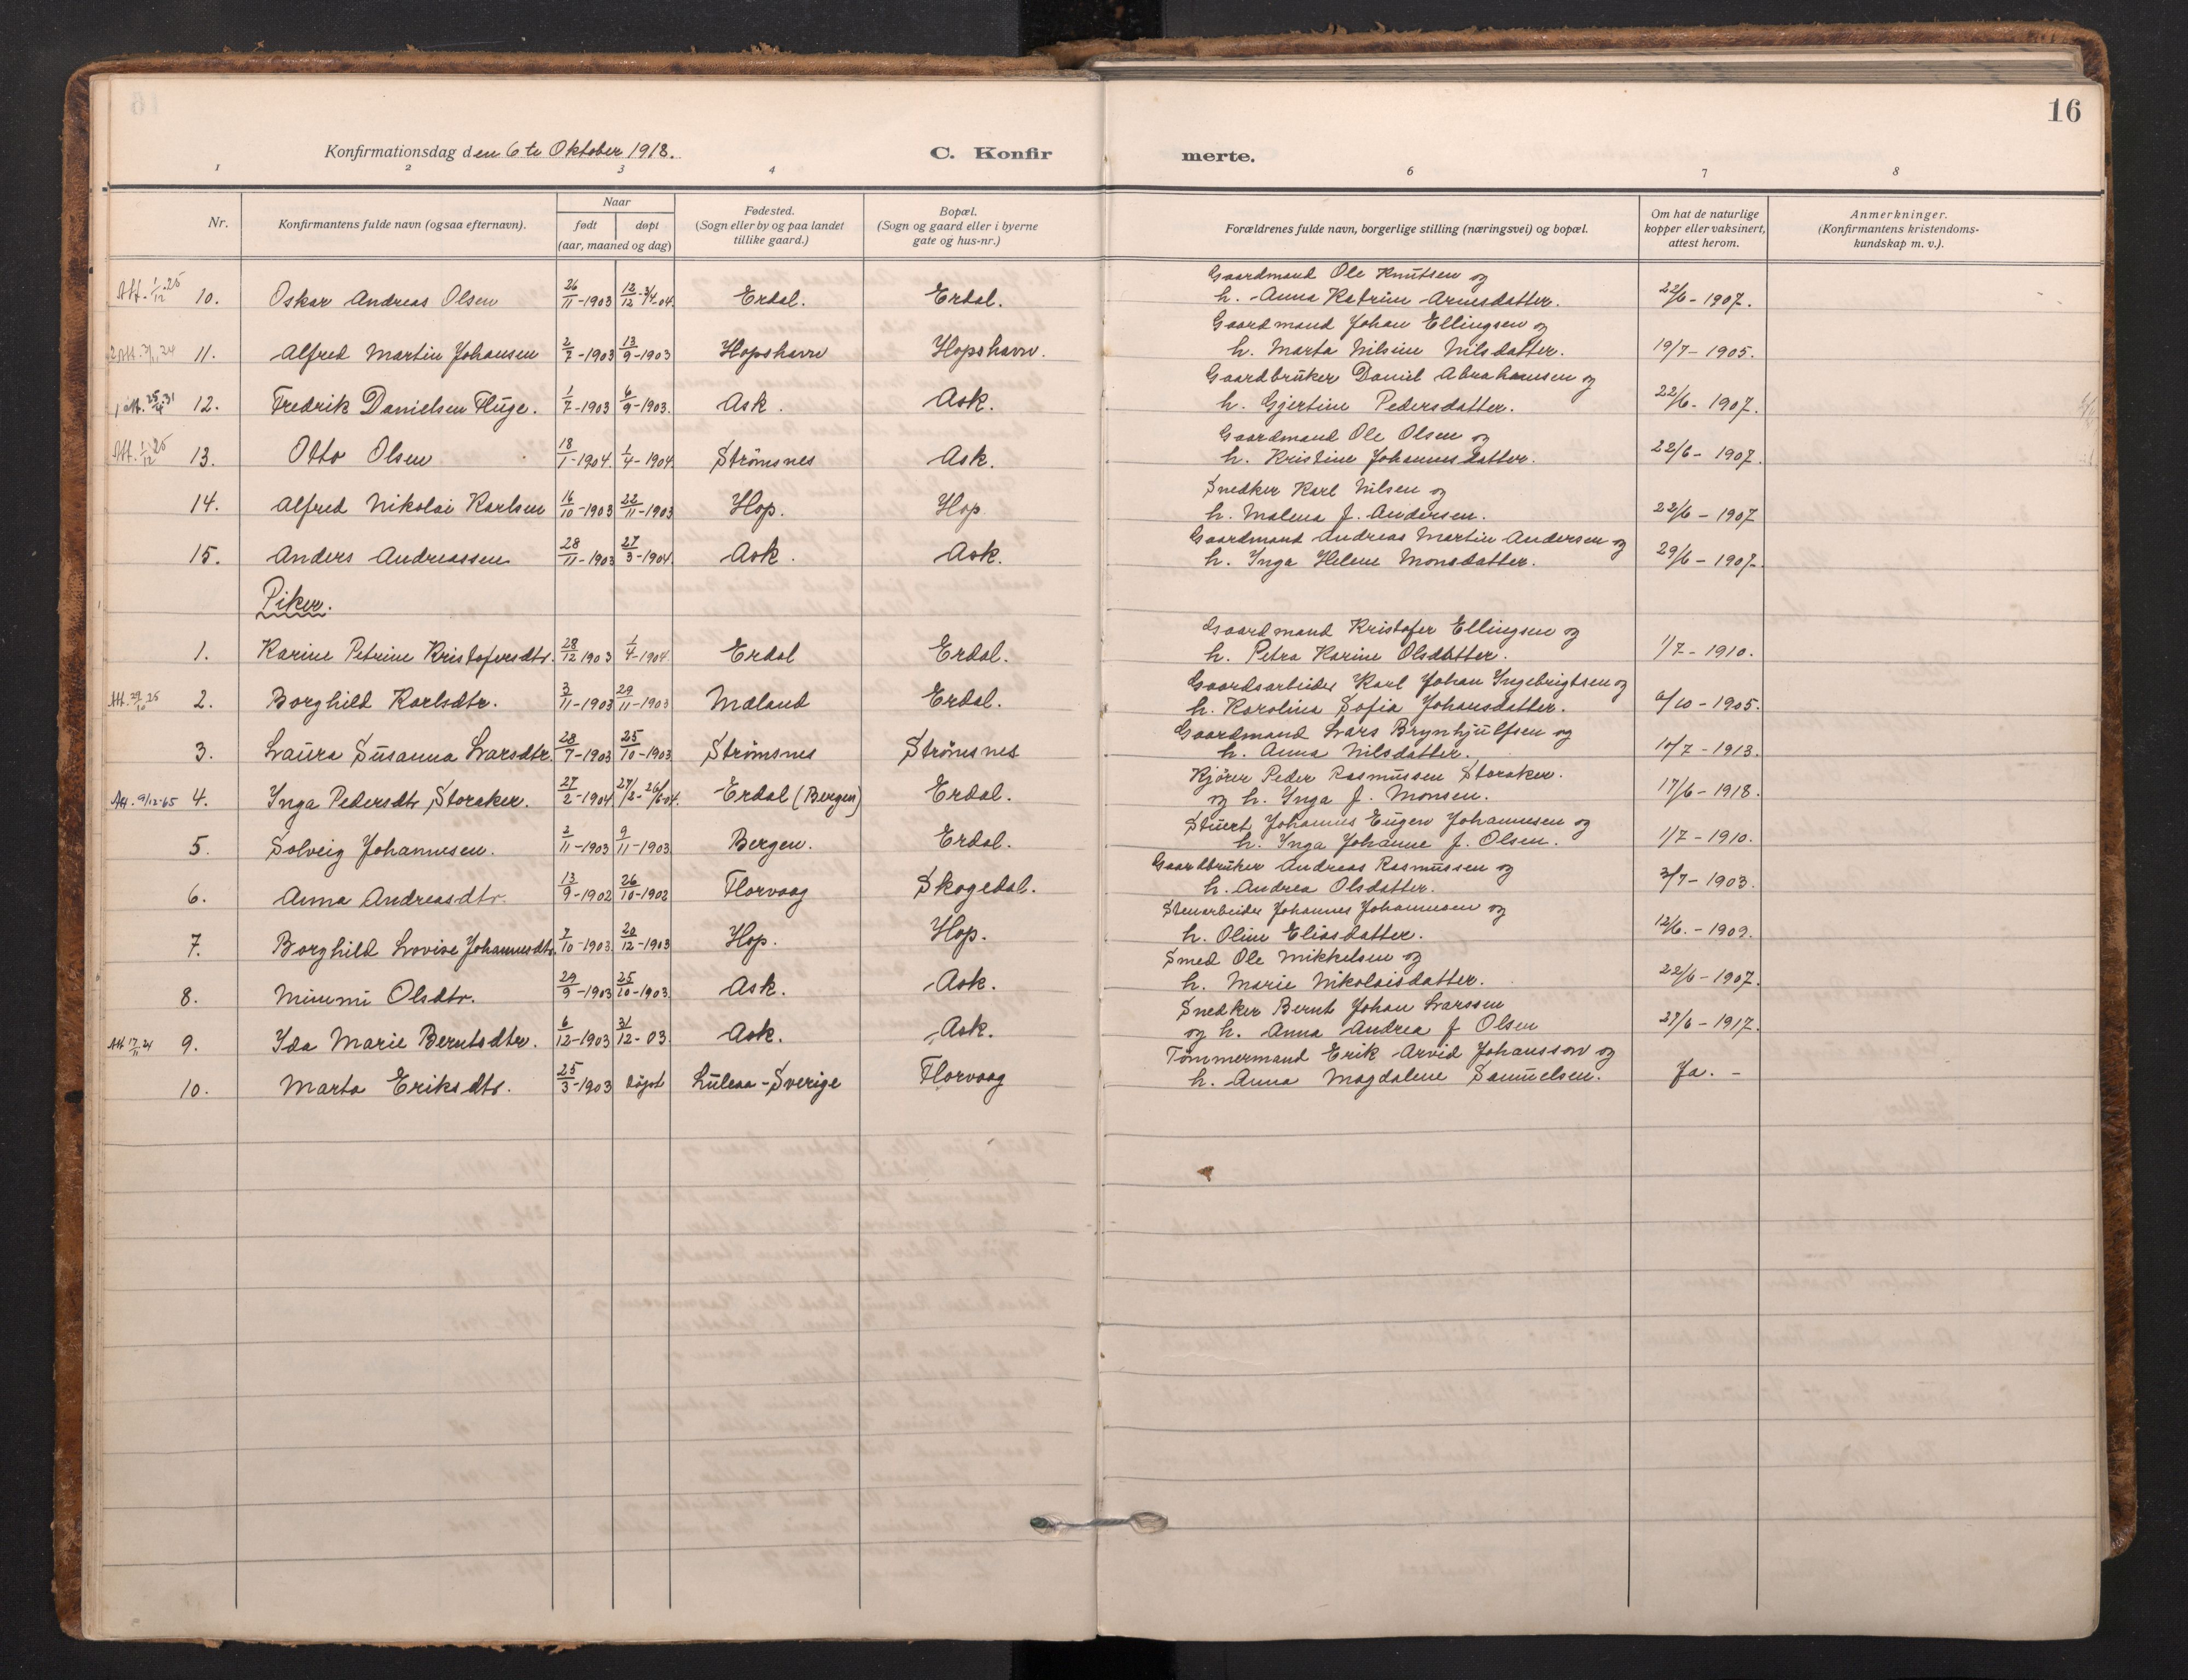 16
Konfirmationsdag den 6te Oktober 1918.
C. Konfirmerte.
1 2 3 4 6 7 8
Nr.
Konfirmantens fulde navn (ogsaa efternavn).
Naar
født døpt
(aar, maaned og dag)
Fødested.
(Sogn eller by og paa landet
tillike gaard.)
Bopæl.
(Sogn og gaard eller i byerne
gate og hus-nr.)
Forældrenes fulde navn, borgerlige stilling (næringsvei) og bopæl.
Om hat de naturlige
kopper eller vaksinert,
attest herom.
Anmerkninger.
(Konfirmantens kristendoms-
kundskap m. v.).
Gaardmand Ole Knutsen og
Att. 1/12 25 10. Oskar Andreas Olsen 26/11-1903 12/12-3/4-04. Erdal. Erdal. h. Anna Katrine Arnesdatter. 22/6-1907.
Gaardmand Johan Ellingsen og
11. Alfred Martin Johansen 2/7-1903 13/9-1903 Hopshavn Hopshavn. h. Marta Nilsine Nilsdatter. 19/7-1905.
Gaardbruker Daniel Abrahamsen og
12. Fredrik Danielsen Fluge. 1/7-1903 6/9-1903. Ask. Ask. h. Gjertine Pedersdatter. 22/6-1907.
Gaardmand Ole Olsen og
Att. 1/12 25 13. Otto Olsen 18/1-1904. 1/4-1904. Strömsnes Ask. h. Kristine Johannesdatter. 22/6-1907.
Snedker Karl Nilsen og
14. Alfred Nikolai Karlsen 16/10-1903 22/11-1903 Hop. Hop h. Malena J. Andersen. 22/6-1907
Gaardmand Andreas Martin Andersen og
15. Anders Andreassen 28/11-1903 27/3-1904. Ask. Ask. h. Inga Helene Monsdatter. 29/6-1907.
Piker.
Gaardmand Kristofer Ellingsen og
1. Karine Petrine Kristofersdtr. 28/12 1903 1/4-1904. Erdal Erdal. h. Petra Karine Olsdatter. 1/7-1910.
Gaardsarbeider Karl Johan Ingebrigtsen og
Att. 29/10 25 2. Borghild Karlsdtr. 3/11-1903 29/11-1903 Mæland Erdal. h. Karolina Sofia Johansdatter. /10-1905.
Gaardmand Lars Brynhjulfsen og
3. Laura Susanna Larsdtr. 28/7-1903 25/10-1903 Strömsnes Strömsnes h. Anna Nilsdatter. 10/7-1913.
Kjörer Peder Rasmussen Storaker.
Att. 9/12-65 4. Inga Pedersdtr Storaker. 27/2-1904 27/2-26/6-04. Erdal (Bergen) Erdal. og h. Inga J. Monsen. 17/6-1918.
Stuert Johannes Eugen Johannesen og
5. Solveig Johannesen. 2/11-1903 9/11-1903 Bergen. Erdal. h. Inga Johanne J. Olsen. 1/7-1910.
Gaardbruker Andreas Rasmussen og
6. Anna Andreasdtr. 13/9-1902 26/10-1902 Florvaag Skogedal. h. Andrea Olsdatter. 3/7-1903.
Stenarbeider Johannes Johannesen og
7. Borghild Lovise Johannesdtr. 7/10-1903. 20/12-1903 Hop. Hop. h. Oline Eliasdatter. 12/6.-1909.
Smed Ole Mikkelsen og
8. Mimmi Olsdtr. 29/9-1903 25/10-1903. Ask. Ask. h. Marie Nikolaisdatter. 22/6-1907.
Snedker Bernt Johan Larssen
Att 17/11 24 9. Ida Marie Berntsdtr. 6/12-1903 31/12-03. Ask. Ask. og h. Anna Andrea J Olsen 27/6-1917.
Tömmermand Erik Arvid Johansson og
10. Marta Eriksdtr. 25/3-1903 döpt Luleaa-Sverige Florvaag h. Anna Magdalene Samuelsen. Ja. -